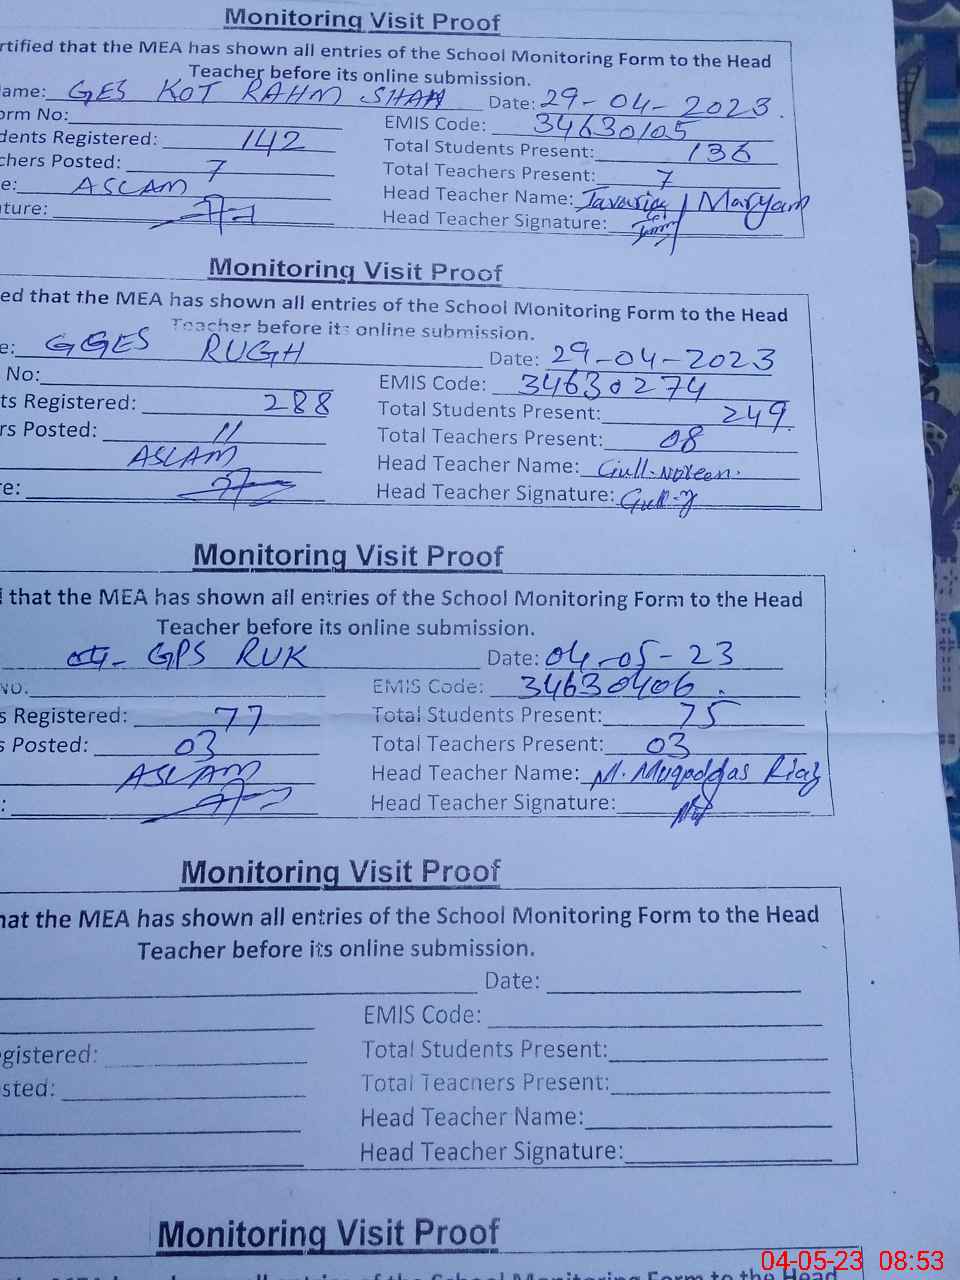 Monitoring Visit Proof
rtified that the MEA has shown all entries of the School Monitoring Form to the Head
Teacher before its online submission.
ame: GES KOT RAHM SHAH Date: 29-04-2023.
orm No: EMIS Code: 34630105
dents Registered: 142 Total Students Present: 136
chers Posted: 7 Total Teachers Present: 7
e: ASLAM Head Teacher Name: Maryam
ture: Head Teacher Signature:
Monitoring Visit Proof
ed that the MEA has shown all entries of the School Monitoring Form to the Head
Teacher before its online submission.
e: GGES RUGH Date: 29-04-2023
No: EMIS Code: 34630274
ts Registered: 288 Total Students Present: 249.
rs Posted: 11 Total Teachers Present: 08
ASLAM Head Teacher Name: Gull.Noreen.
re: Head Teacher Signature:
Monitoring Visit Proof
that the MEA has shown all entries of the School Monitoring Form to the Head
Teacher before its online submission.
GPS RUK Date: 04-05-23
No. EMIS Code: 34630406.
s Registered: 77 Total Students Present: 75
s Posted: 03 Total Teachers Present: 03
ASLAM Head Teacher Name: M. Muqaddas Riaz
: Head Teacher Signature:
Monitoring Visit Proof
hat the MEA has shown all entries of the School Monitoring Form to the Head
Teacher before its online submission.
Date:
EMIS Code:
egistered: Total Students Present:
sted: Total Teachers Present:
Head Teacher Name:
Head Teacher Signature:
Monitoring Visit Proof
04-05-23 08:53